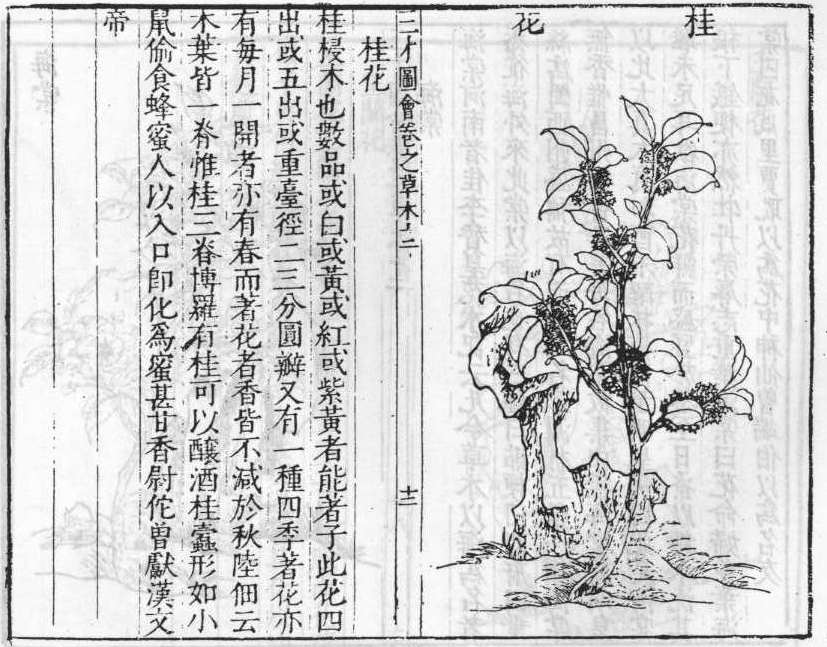 桂花
三才圖會卷之草木十二
十三
桂花
桂梫木也數品或白或黃或紅或紫黃者能著子此花四
出或五出或重臺徑二三分圓瓣又有一種四季著花亦
有每月一開者亦有春而著花者香皆不減於秋陸佃云
木葉皆一脊惟桂三脊博羅有桂可以釀酒桂蠹形如小
鼠偷食蜂蜜人以入口卽化爲蜜甚甘香尉佗曾獻漢文
帝